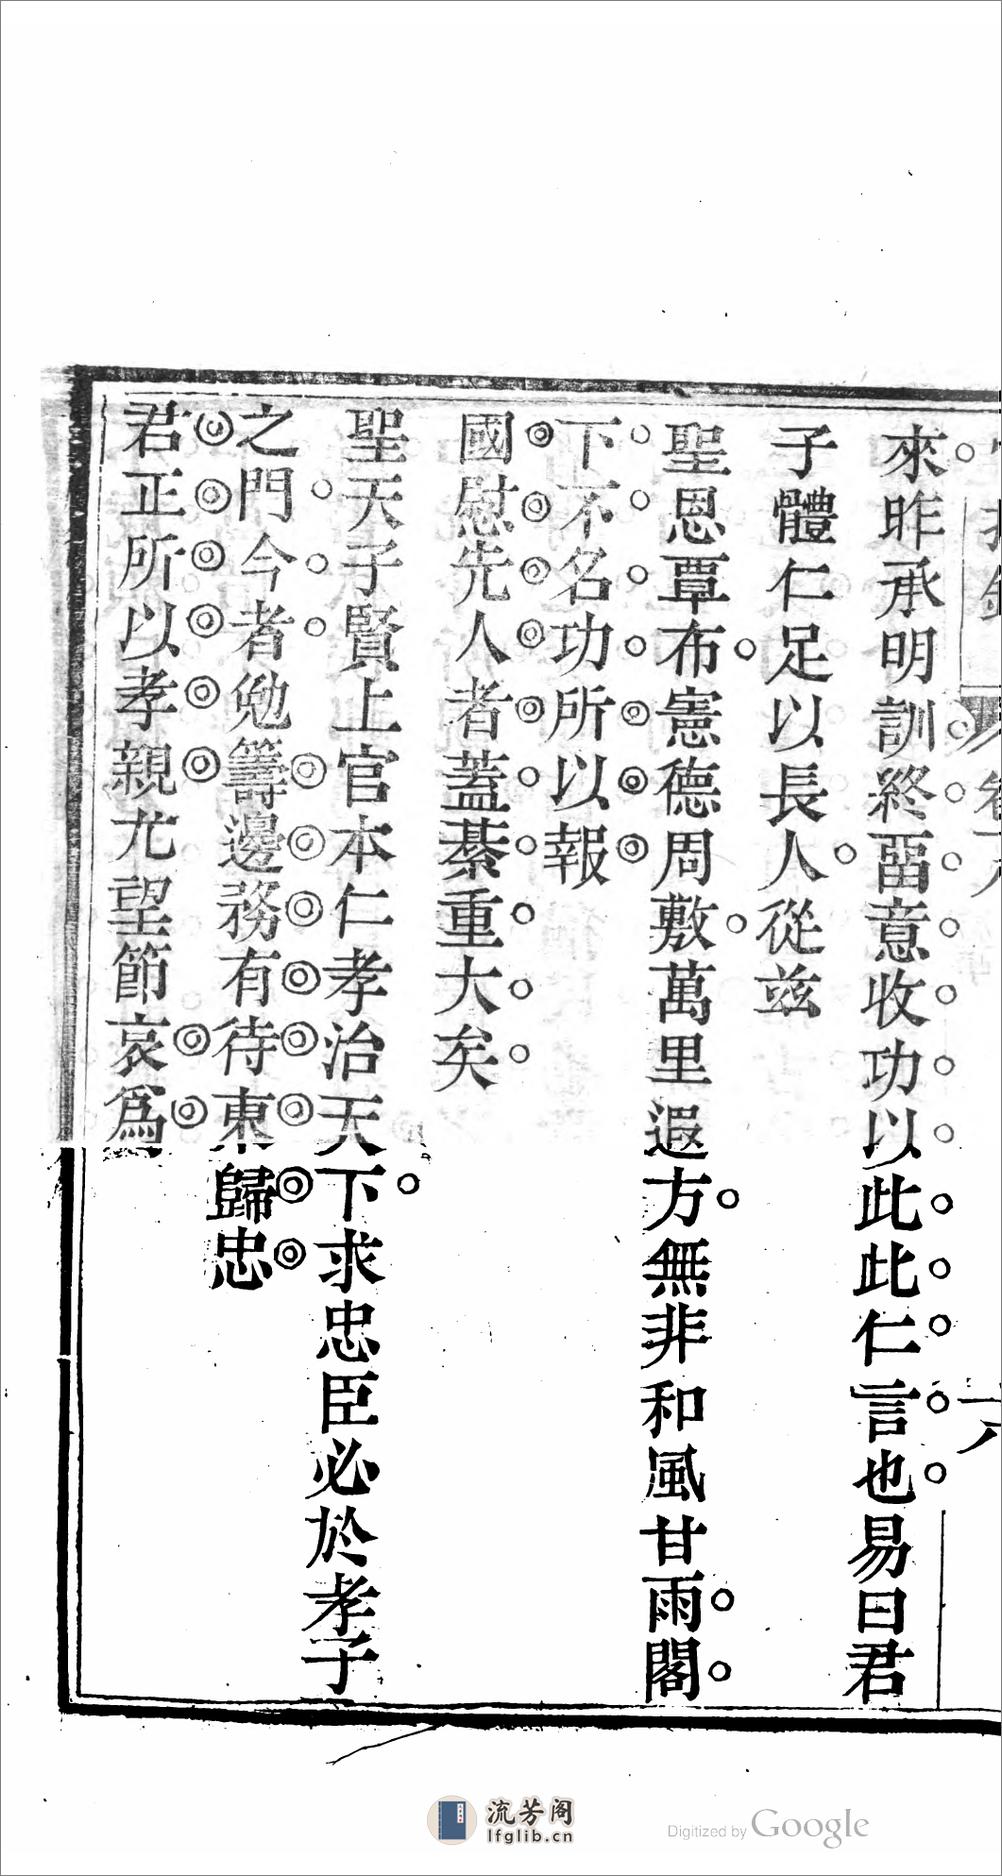 來昨承明訓終畱意收功以此此仁言也易曰君
子體仁足以長人從茲
聖恩覃布憲德周敷萬里遐方無非和風甘雨閣
下不名功所以報
國慰先人者蓋綦重大矣
聖天子賢上官本仁孝治天下求忠臣必於孝子
之門今者勉籌邊務有待東歸忠
君正所以孝親尤望節哀爲
流芳阁
lfglib.cn
Digitized by Google